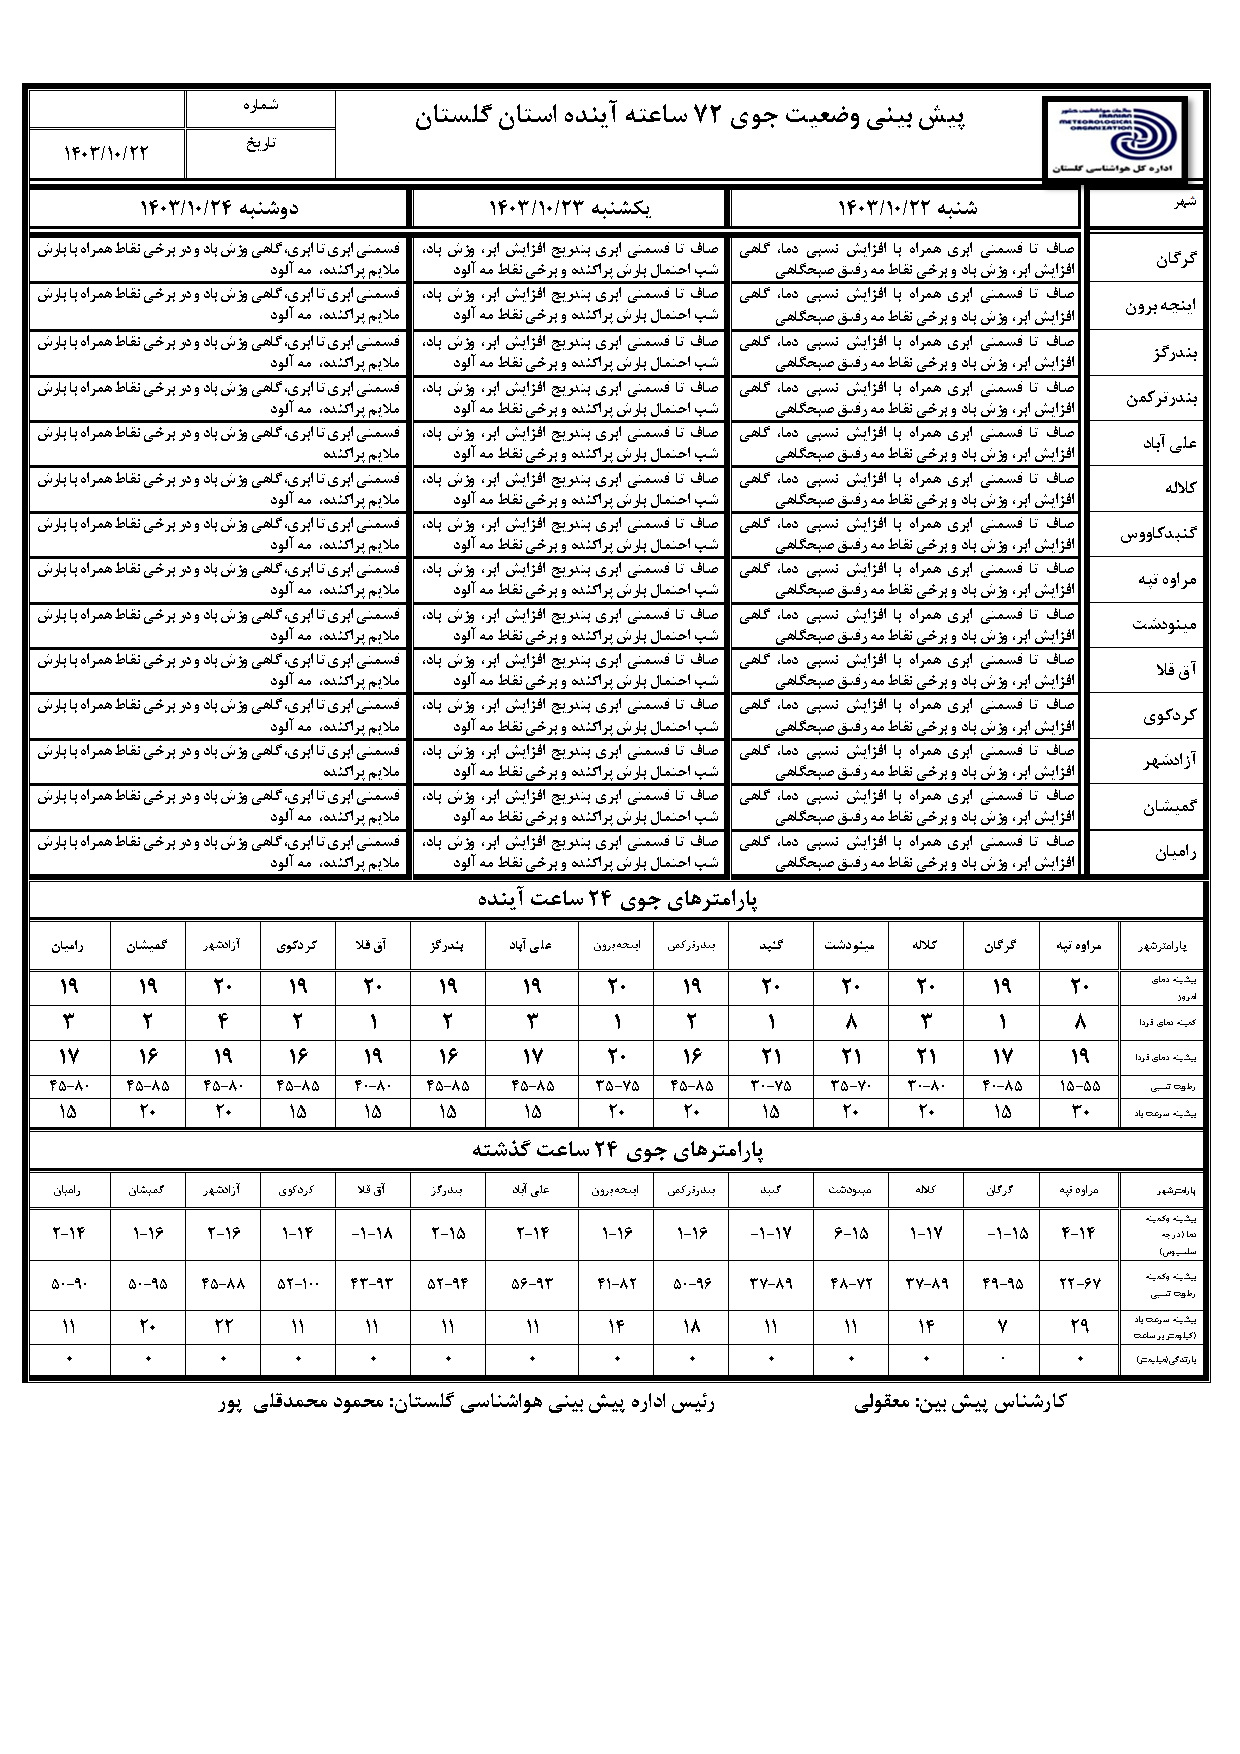 سازمان هواشناسی کشور
IRANIAN
METEOROLOGICAL
ORGANIZATION
اداره کل هواشناسی گلستان
پیش بینی وضعیت جوی ۷۲ ساعته آینده استان گلستان
شماره
تاریخ ۱۴۰۳/۱۰/۲۲
شهر شنبه ۱۴۰۳/۱۰/۲۲ یکشنبه ۱۴۰۳/۱۰/۲۳ دوشنبه ۱۴۰۳/۱۰/۲۴
گرگان
صاف تا قسمتی ابری همراه با افزایش نسبی دما، گاهی
افزایش ابر، وزش باد و برخی نقاط مه رقیق صبحگاهی
صاف تا قسمتی ابری بتدریج افزایش ابر، وزش باد،
شب احتمال بارش پراکنده و برخی نقاط مه آلود
قسمتی ابری تا ابری، گاهی وزش باد و در برخی نقاط همراه با بارش
ملایم پراکنده، مه آلود
اینچه برون
صاف تا قسمتی ابری همراه با افزایش نسبی دما، گاهی
افزایش ابر، وزش باد و برخی نقاط مه رقیق صبحگاهی
صاف تا قسمتی ابری بتدریج افزایش ابر، وزش باد،
شب احتمال بارش پراکنده و برخی نقاط مه آلود
قسمتی ابری تا ابری، گاهی وزش باد و در برخی نقاط همراه با بارش
ملایم پراکنده، مه آلود
بندرگز
صاف تا قسمتی ابری همراه با افزایش نسبی دما، گاهی
افزایش ابر، وزش باد و برخی نقاط مه رقیق صبحگاهی
صاف تا قسمتی ابری بتدریج افزایش ابر، وزش باد،
شب احتمال بارش پراکنده و برخی نقاط مه آلود
قسمتی ابری تا ابری، گاهی وزش باد و در برخی نقاط همراه با بارش
ملایم پراکنده، مه آلود
بندرترکمن
صاف تا قسمتی ابری همراه با افزایش نسبی دما، گاهی
افزایش ابر، وزش باد و برخی نقاط مه رقیق صبحگاهی
صاف تا قسمتی ابری بتدریج افزایش ابر، وزش باد،
شب احتمال بارش پراکنده و برخی نقاط مه آلود
قسمتی ابری تا ابری، گاهی وزش باد و در برخی نقاط همراه با بارش
ملایم پراکنده، مه آلود
علی آباد
صاف تا قسمتی ابری همراه با افزایش نسبی دما، گاهی
افزایش ابر، وزش باد و برخی نقاط مه رقیق صبحگاهی
صاف تا قسمتی ابری بتدریج افزایش ابر، وزش باد،
شب احتمال بارش پراکنده و برخی نقاط مه آلود
قسمتی ابری تا ابری، گاهی وزش باد و در برخی نقاط همراه با بارش
ملایم پراکنده
کلاله
صاف تا قسمتی ابری همراه با افزایش نسبی دما، گاهی
افزایش ابر، وزش باد و برخی نقاط مه رقیق صبحگاهی
صاف تا قسمتی ابری بتدریج افزایش ابر، وزش باد،
شب احتمال بارش پراکنده و برخی نقاط مه آلود
قسمتی ابری تا ابری، گاهی وزش باد و در برخی نقاط همراه با بارش
ملایم پراکنده، مه آلود
گنبدکاووس
صاف تا قسمتی ابری همراه با افزایش نسبی دما، گاهی
افزایش ابر، وزش باد و برخی نقاط مه رقیق صبحگاهی
صاف تا قسمتی ابری بتدریج افزایش ابر، وزش باد،
شب احتمال بارش پراکنده و برخی نقاط مه آلود
قسمتی ابری تا ابری، گاهی وزش باد و در برخی نقاط همراه با بارش
ملایم پراکنده، مه آلود
مراوه تپه
صاف تا قسمتی ابری همراه با افزایش نسبی دما، گاهی
افزایش ابر، وزش باد و برخی نقاط مه رقیق صبحگاهی
صاف تا قسمتی ابری بتدریج افزایش ابر، وزش باد،
شب احتمال بارش پراکنده و برخی نقاط مه آلود
قسمتی ابری تا ابری، گاهی وزش باد و در برخی نقاط همراه با بارش
ملایم پراکنده، مه آلود
مینودشت
صاف تا قسمتی ابری همراه با افزایش نسبی دما، گاهی
افزایش ابر، وزش باد و برخی نقاط مه رقیق صبحگاهی
صاف تا قسمتی ابری بتدریج افزایش ابر، وزش باد،
شب احتمال بارش پراکنده و برخی نقاط مه آلود
قسمتی ابری تا ابری، گاهی وزش باد و در برخی نقاط همراه با بارش
ملایم پراکنده، مه آلود
آق قلا
صاف تا قسمتی ابری همراه با افزایش نسبی دما، گاهی
افزایش ابر، وزش باد و برخی نقاط مه رقیق صبحگاهی
صاف تا قسمتی ابری بتدریج افزایش ابر، وزش باد،
شب احتمال بارش پراکنده و برخی نقاط مه آلود
قسمتی ابری تا ابری، گاهی وزش باد و در برخی نقاط همراه با بارش
ملایم پراکنده، مه آلود
کردکوی
صاف تا قسمتی ابری همراه با افزایش نسبی دما، گاهی
افزایش ابر، وزش باد و برخی نقاط مه رقیق صبحگاهی
صاف تا قسمتی ابری بتدریج افزایش ابر، وزش باد،
شب احتمال بارش پراکنده و برخی نقاط مه آلود
قسمتی ابری تا ابری، گاهی وزش باد و در برخی نقاط همراه با بارش
ملایم پراکنده، مه آلود
آزادشهر
صاف تا قسمتی ابری همراه با افزایش نسبی دما، گاهی
افزایش ابر، وزش باد و برخی نقاط مه رقیق صبحگاهی
صاف تا قسمتی ابری بتدریج افزایش ابر، وزش باد،
شب احتمال بارش پراکنده و برخی نقاط مه آلود
قسمتی ابری تا ابری، گاهی وزش باد و در برخی نقاط همراه با بارش
ملایم پراکنده
گمیشان
صاف تا قسمتی ابری همراه با افزایش نسبی دما، گاهی
افزایش ابر، وزش باد و برخی نقاط مه رقیق صبحگاهی
صاف تا قسمتی ابری بتدریج افزایش ابر، وزش باد،
شب احتمال بارش پراکنده و برخی نقاط مه آلود
قسمتی ابری تا ابری، گاهی وزش باد و در برخی نقاط همراه با بارش
ملایم پراکنده، مه آلود
رامیان
صاف تا قسمتی ابری همراه با افزایش نسبی دما، گاهی
افزایش ابر، وزش باد و برخی نقاط مه رقیق صبحگاهی
صاف تا قسمتی ابری بتدریج افزایش ابر، وزش باد،
شب احتمال بارش پراکنده و برخی نقاط مه آلود
قسمتی ابری تا ابری، گاهی وزش باد و در برخی نقاط همراه با بارش
ملایم پراکنده، مه آلود
پارامترهای جوی ۲۴ ساعت آینده
پارامترشهر مراوه تپه گرگان کلاله مینودشت گنبد بندرترکمن اینچه برون علی آباد بندرگز آق قلا کردکوی آزادشهر گمیشان رامیان
بیشینه دمای امروز ۲۰ ۱۹ ۲۰ ۲۰ ۲۰ ۱۹ ۲۰ ۱۹ ۱۹ ۲۰ ۱۹ ۲۰ ۱۹ ۱۹
کمینه دمای فردا ۸ ۱ ۳ ۸ ۱ ۲ ۱ ۳ ۲ ۱ ۲ ۴ ۲ ۳
بیشینه دمای فردا ۱۹ ۱۷ ۲۱ ۲۱ ۲۱ ۱۶ ۲۰ ۱۷ ۱۶ ۱۹ ۱۶ ۱۹ ۱۶ ۱۷
رطوبت نسبی ۱۵-۵۵ ۴۰-۸۵ ۳۰-۸۰ ۳۵-۷۰ ۳۰-۷۵ ۴۵-۸۵ ۳۵-۷۵ ۴۵-۸۵ ۴۵-۸۵ ۴۰-۸۰ ۴۵-۸۵ ۴۵-۸۰ ۴۵-۸۵ ۴۵-۸۰
بیشینه سرعت باد ۳۰ ۱۵ ۲۰ ۲۰ ۱۵ ۲۰ ۲۰ ۱۵ ۱۵ ۱۵ ۱۵ ۲۰ ۲۰ ۱۵
پارامترهای جوی ۲۴ ساعت گذشته
پارامترشهر مراوه تپه گرگان کلاله مینودشت گنبد بندرترکمن اینچه برون علی آباد بندرگز آق قلا کردکوی آزادشهر گمیشان رامیان
بیشینه وکمینه دما (درجه سلسیوس) ۴-۱۴ -۱-۱۵ ۱-۱۷ ۶-۱۵ -۱-۱۷ ۱-۱۶ ۱-۱۶ ۲-۱۴ ۲-۱۵ -۱-۱۸ ۱-۱۴ ۲-۱۶ ۱-۱۶ ۲-۱۴
بیشینه وکمینه رطوبت نسبی ۲۲-۶۷ ۴۹-۹۵ ۳۷-۸۹ ۴۸-۷۲ ۳۷-۸۹ ۵۰-۹۶ ۴۱-۸۲ ۵۶-۹۳ ۵۲-۹۴ ۴۳-۹۳ ۵۲-۱۰۰ ۴۵-۸۸ ۵۰-۹۵ ۵۰-۹۰
بیشینه سرعت باد (کیلومتر بر ساعت ۲۹ ۷ ۱۴ ۱۱ ۱۱ ۱۸ ۱۴ ۱۱ ۱۱ ۱۱ ۱۱ ۲۲ ۲۰ ۱۱
بارندگی(میلیمتر) ۰ ۰ ۰ ۰ ۰ ۰ ۰ ۰ ۰ ۰ ۰ ۰ ۰ ۰
کارشناس پیش بین: معقولی رئیس اداره پیش بینی هواشناسی گلستان: محمود محمدقلی پور